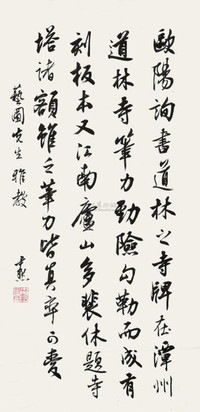 歐陽詢書道林之寺牌在潭州
道林寺筆力勁險勾勒而成有
刻板本又江南廬山多裴休題寺
塔諸額雖乏筆力皆真率可愛
藝圃先生雅教